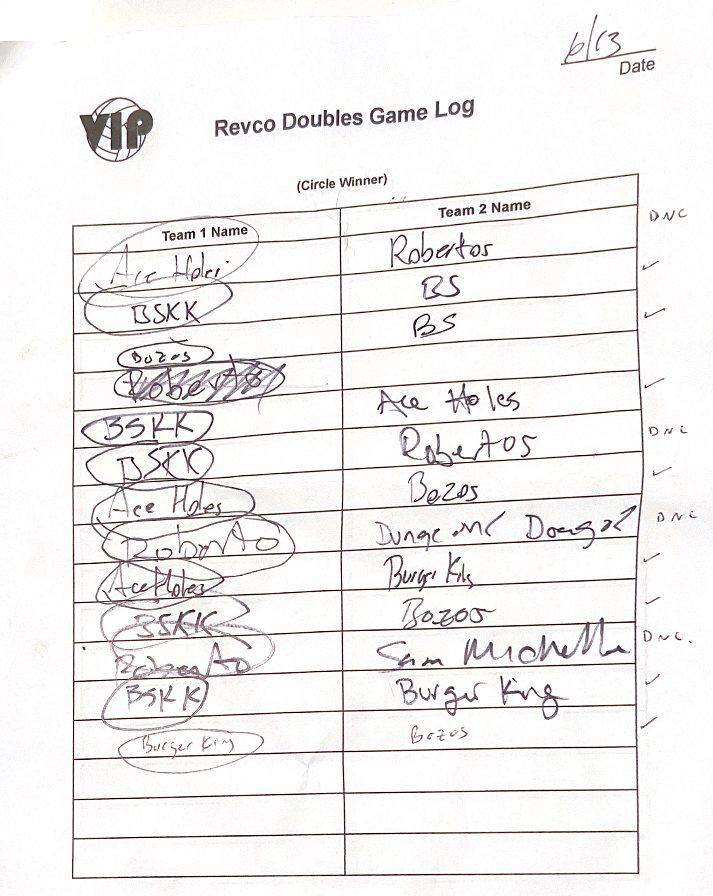 6/13
Date
VIP
Revco Doubles Game Log
(Circle Winner)
Team 1 Name Team 2 Name DNC
Ace Holes Robertos
BSKK BS
BS
Bozos
Roberto
Ace Holes
BSKK Robertos DNC
BSKK Bozos
Ace Holes DNC
Roberto
Ace Holes Burger King
BSKK Bozos
Roberto Sam Michelle DNC.
BSKK Burger King
Burger King Bozos